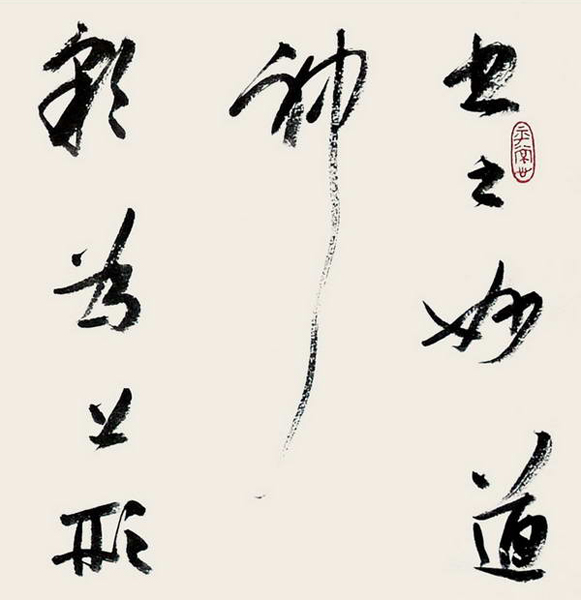 書之妙道
神
彩為上形